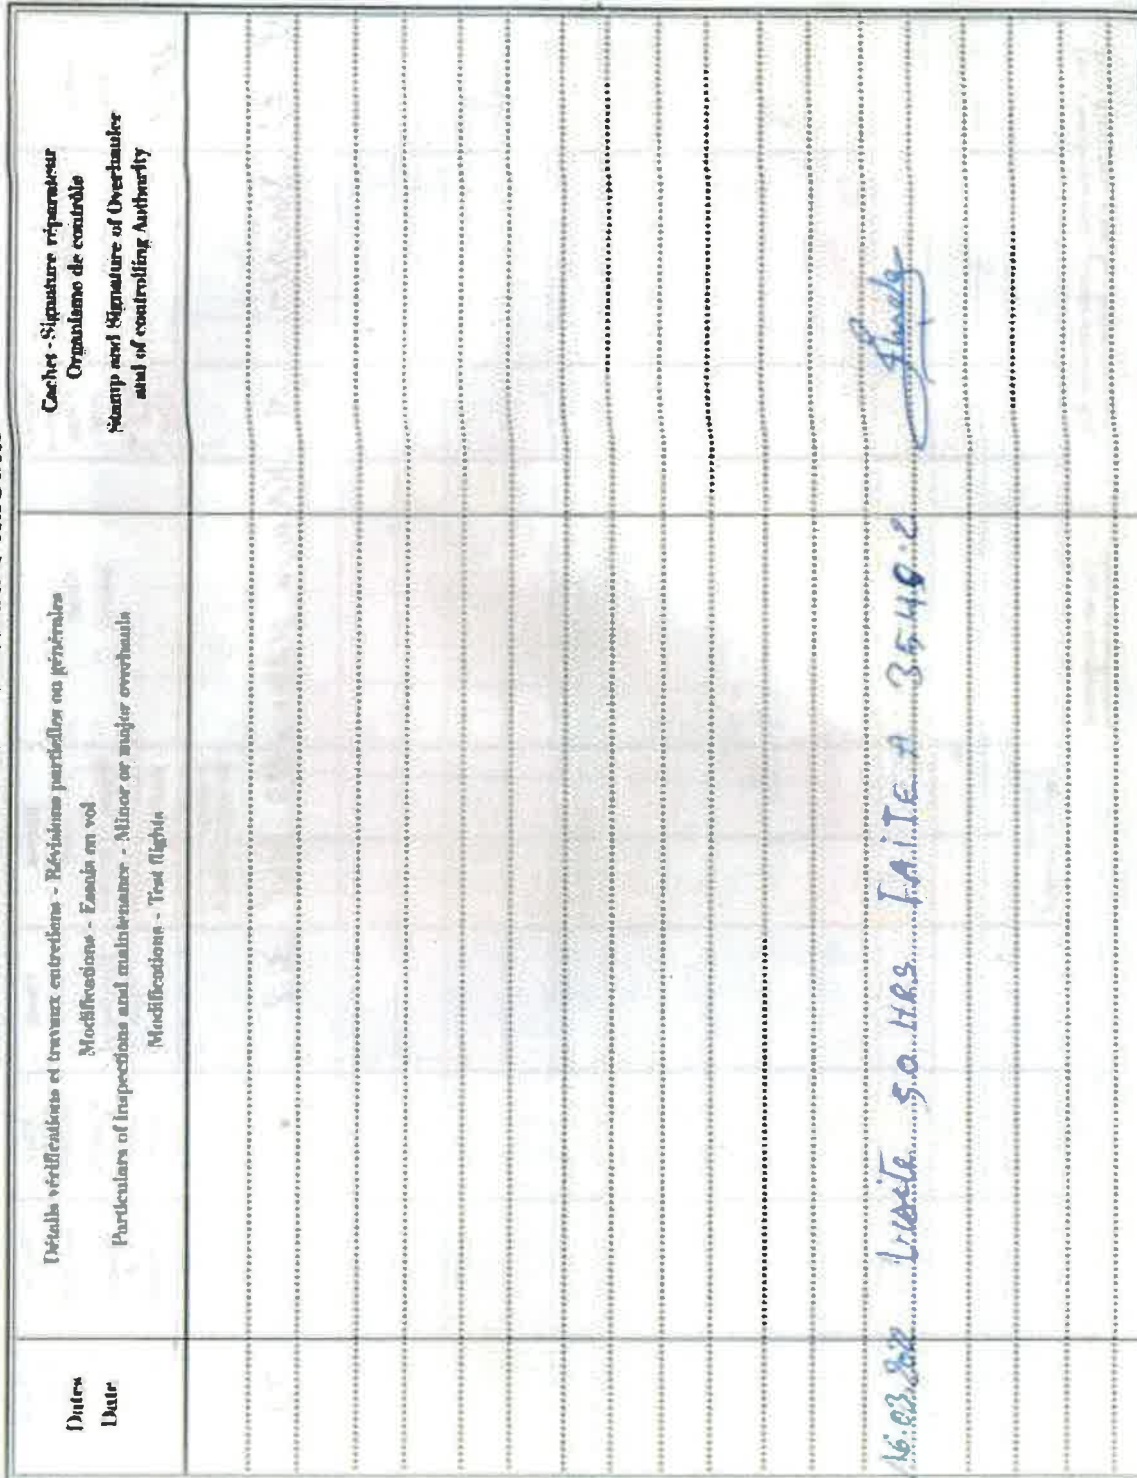 Dates
Date
Détails vérifications et travaux entretiens - Révisions partielles ou générales
Modifications - Essais en vol
Particulars of inspections and maintenance - Minor or major overhauls
Modifications - Test flights
Cachet - Signature réparateur
Organisme de contrôle
Stamp and Signature of Overhauler
and of controlling Authority
16.03.2022 Visite 50 HRS FAITE A 3549.2